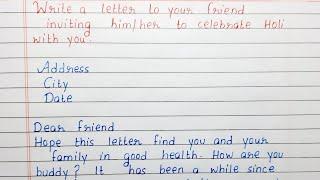 Write a letter to your friend
inviting him/her to celebrate Holi
with you.
Address
City
Date
Dear friend
Hope this letter find you and your
family in good health. How are you
buddy? It has been a while since